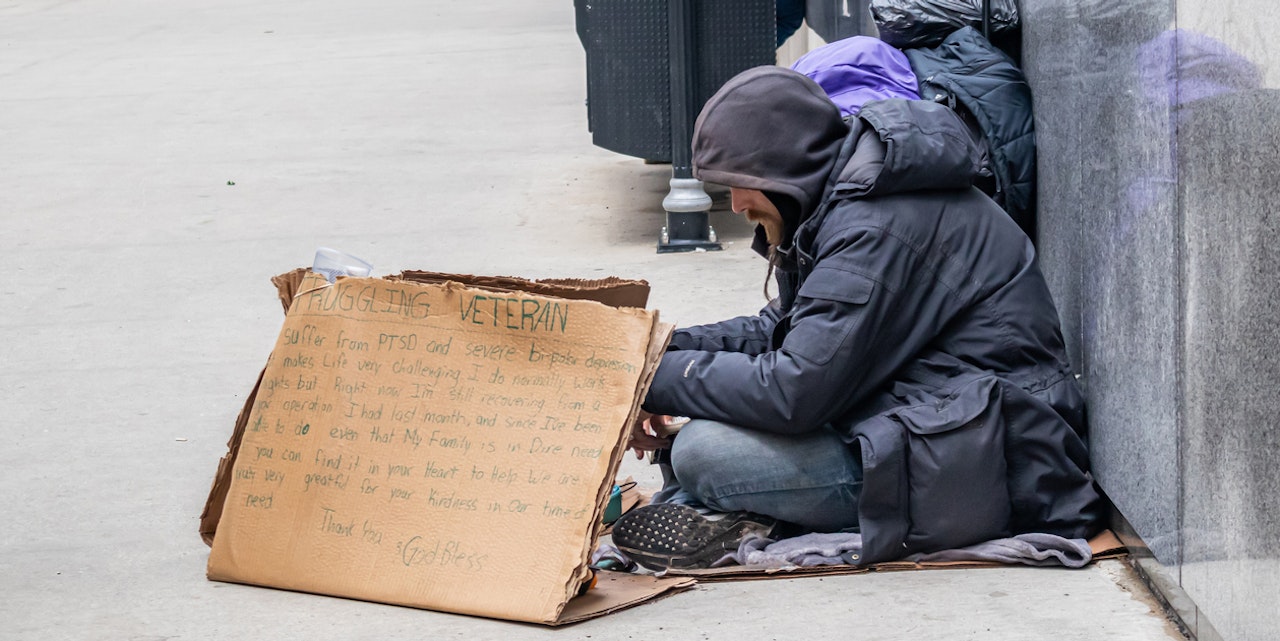 RUGGLING VETERAN
suffer from PTSD and severe bi-polar depression
makes Life very challenging. I do normally work
ghts but Right now I'm still recovering from a
jor operation I had last month, and since I've been
able to do even that My Family is in Dire need
you can find it in your Heart to Help We are
very greatful for your Kindness in Our time of
need
Thank You & God Bless